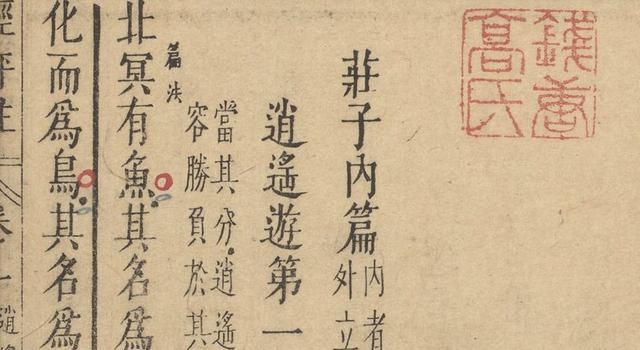 錢唐
高氏
莊子內篇
內者
外立
逍遙遊第一
當其分逍遙
容勝負於其
篇法
北冥有魚其名爲
化而爲鳥其名爲